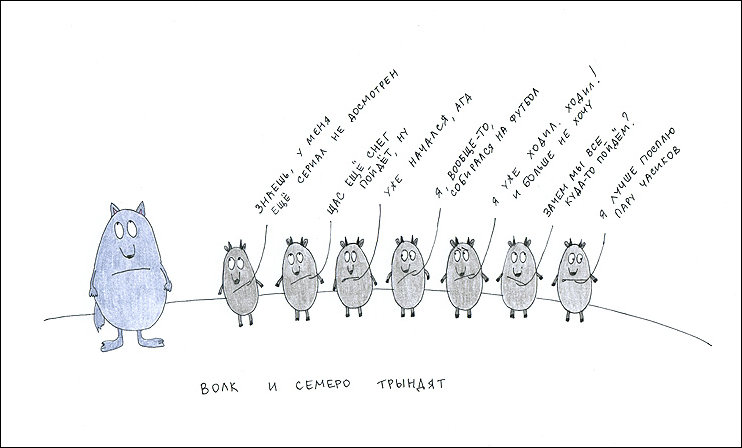 ЗНАЕШЬ, У МЕНЯ
ЕЩЁ СЕРИАЛ НЕ ДОСМОТРЕН
ЩАС ЕЩЁ СНЕГ
ПОЙДЁТ, НУ
УЖЕ НАЧАЛСЯ, АГА
Я, ВООБЩЕ-ТО,
СОБИРАЛСЯ НА ФУТБОЛ
Я УЖЕ ХОДИЛ. ХОДИЛ!
И БОЛЬШЕ НЕ ХОЧУ
ЗАЧЕМ МЫ ВСЕ
КУДА-ТО ПОЙДЁМ?
Я ЛУЧШЕ ПОСПЛЮ
ПАРУ ЧАСИКОВ
ВОЛК И СЕМЕРО ТРЫНДЯТ